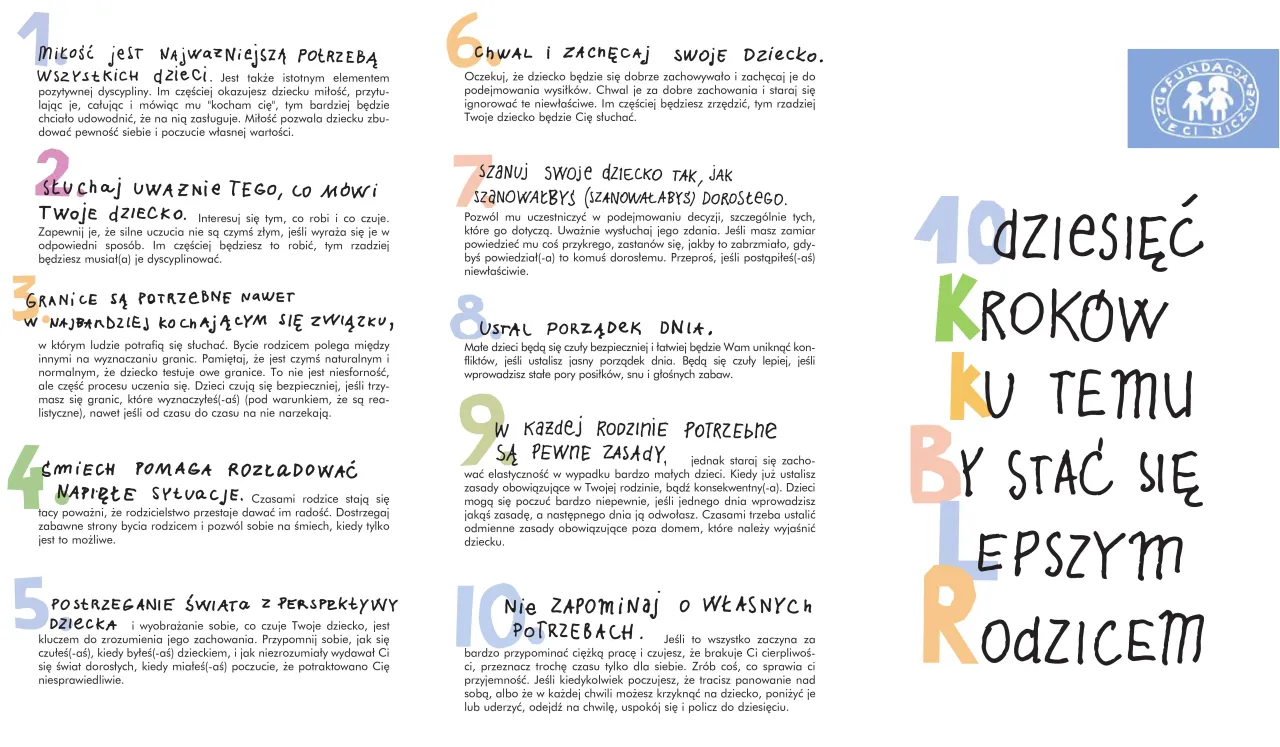 1.
Miłość jest najważniejszą potrzebą
wszystkich dzieci. Jest także istotnym elementem
pozytywnej dyscypliny. Im częściej okazujesz dziecku miłość, przytu-
lając je, całując i mówiąc mu "kocham cię", tym bardziej będzie
chciało udowodnić, że na nią zasługuje. Miłość pozwala dziecku zbu-
dować pewność siebie i poczucie własnej wartości.
2.
Słuchaj uważnie tego, co mówi
Twoje dziecko. Interesuj się tym, co robi i co czuje.
Zapewnij je, że silne uczucia nie są czymś złym, jeśli wyraża się je w
odpowiedni sposób. Im częściej będziesz to robić, tym rzadziej
będziesz musiał(a) je dyscyplinować.
3.
Granice są potrzebne nawet
w najbardziej kochającym się związku,
w którym ludzie potrafią się słuchać. Bycie rodzicem polega między
innymi na wyznaczaniu granic. Pamiętaj, że jest czymś naturalnym i
normalnym, że dziecko testuje owe granice. To nie jest niesforność,
ale część procesu uczenia się. Dzieci czują się bezpieczniej, jeśli trzy-
masz się granic, które wyznaczyłeś(-aś) (pod warunkiem, że są rea-
listyczne), nawet jeśli od czasu do czasu na nie narzekają.
4.
Śmiech pomaga rozładować
napięte sytuacje. Czasami rodzice stają się
tacy poważni, że rodzicielstwo przestaje dawać im radość. Dostrzegaj
zabawne strony bycia rodzicem i pozwól sobie na śmiech, kiedy tylko
jest to możliwe.
5.
Postrzeganie świata z perspektywy
dziecka i wyobrażanie sobie, co czuje Twoje dziecko, jest
kluczem do zrozumienia jego zachowania. Przypomnij sobie, jak się
czułeś(-aś), kiedy byłeś(-aś) dzieckiem, i jak niezrozumiały wydawał Ci
się świat dorosłych, kiedy miałeś(-aś) poczucie, że potraktowano Cię
niesprawiedliwie.
6.
Chwal i zachęcaj swoje dziecko.
Oczekuj, że dziecko będzie się dobrze zachowywało i zachęcaj je do
podejmowania wysiłków. Chwal je za dobre zachowania i staraj się
ignorować te niewłaściwe. Im częściej będziesz zrzędzić, tym rzadziej
Twoje dziecko będzie Cię słuchać.
7.
Szanuj swoje dziecko tak, jak
szanowałbyś (szanowałabyś) dorosłego.
Pozwól mu uczestniczyć w podejmowaniu decyzji, szczególnie tych,
które go dotyczą. Uważnie wysłuchaj jego zdania. Jeśli masz zamiar
powiedzieć mu coś przykrego, zastanów się, jakby to zabrzmiało, gdy-
byś powiedział(-a) to komuś dorosłemu. Przeproś, jeśli postąpiłeś(-aś)
niewłaściwie.
8.
Ustal porządek dnia.
Małe dzieci będą się czuły bezpieczniej i łatwiej będzie Wam uniknąć kon-
fliktów, jeśli ustalisz jasny porządek dnia. Będą się czuły lepiej, jeśli
wprowadzisz stałe pory posiłków, snu i głośnych zabaw.
9.
W każdej rodzinie potrzebne
są pewne zasady, jednak staraj się zacho-
wać elastyczność w wypadku bardzo małych dzieci. Kiedy już ustalisz
zasady obowiązujące w Twojej rodzinie, bądź konsekwentny(-a). Dzieci
mogą się poczuć bardzo niepewnie, jeśli jednego dnia wprowadzisz
jakąś zasadę, a następnego dnia ją odwołasz. Czasami trzeba ustalić
odmienne zasady obowiązujące poza domem, które należy wyjaśnić
dziecku.
10.
Nie zapominaj o własnych
potrzebach. Jeśli to wszystko zaczyna za
bardzo przypominać ciężką pracę i czujesz, że brakuje Ci cierpliwoś-
ci, przeznacz trochę czasu tylko dla siebie. Zrób coś, co sprawia ci
przyjemność. Jeśli kiedykolwiek poczujesz, że tracisz panowanie nad
sobą, albo że w każdej chwili możesz krzyknąć na dziecko, poniżyć je
lub uderzyć, odejdź na chwilę, uspokój się i policz do dziesięciu.
FUNDACJA
DZIECI NICZYJE
10 dziesięć
kroków
ku temu
by stać się
lepszym
rodzicem